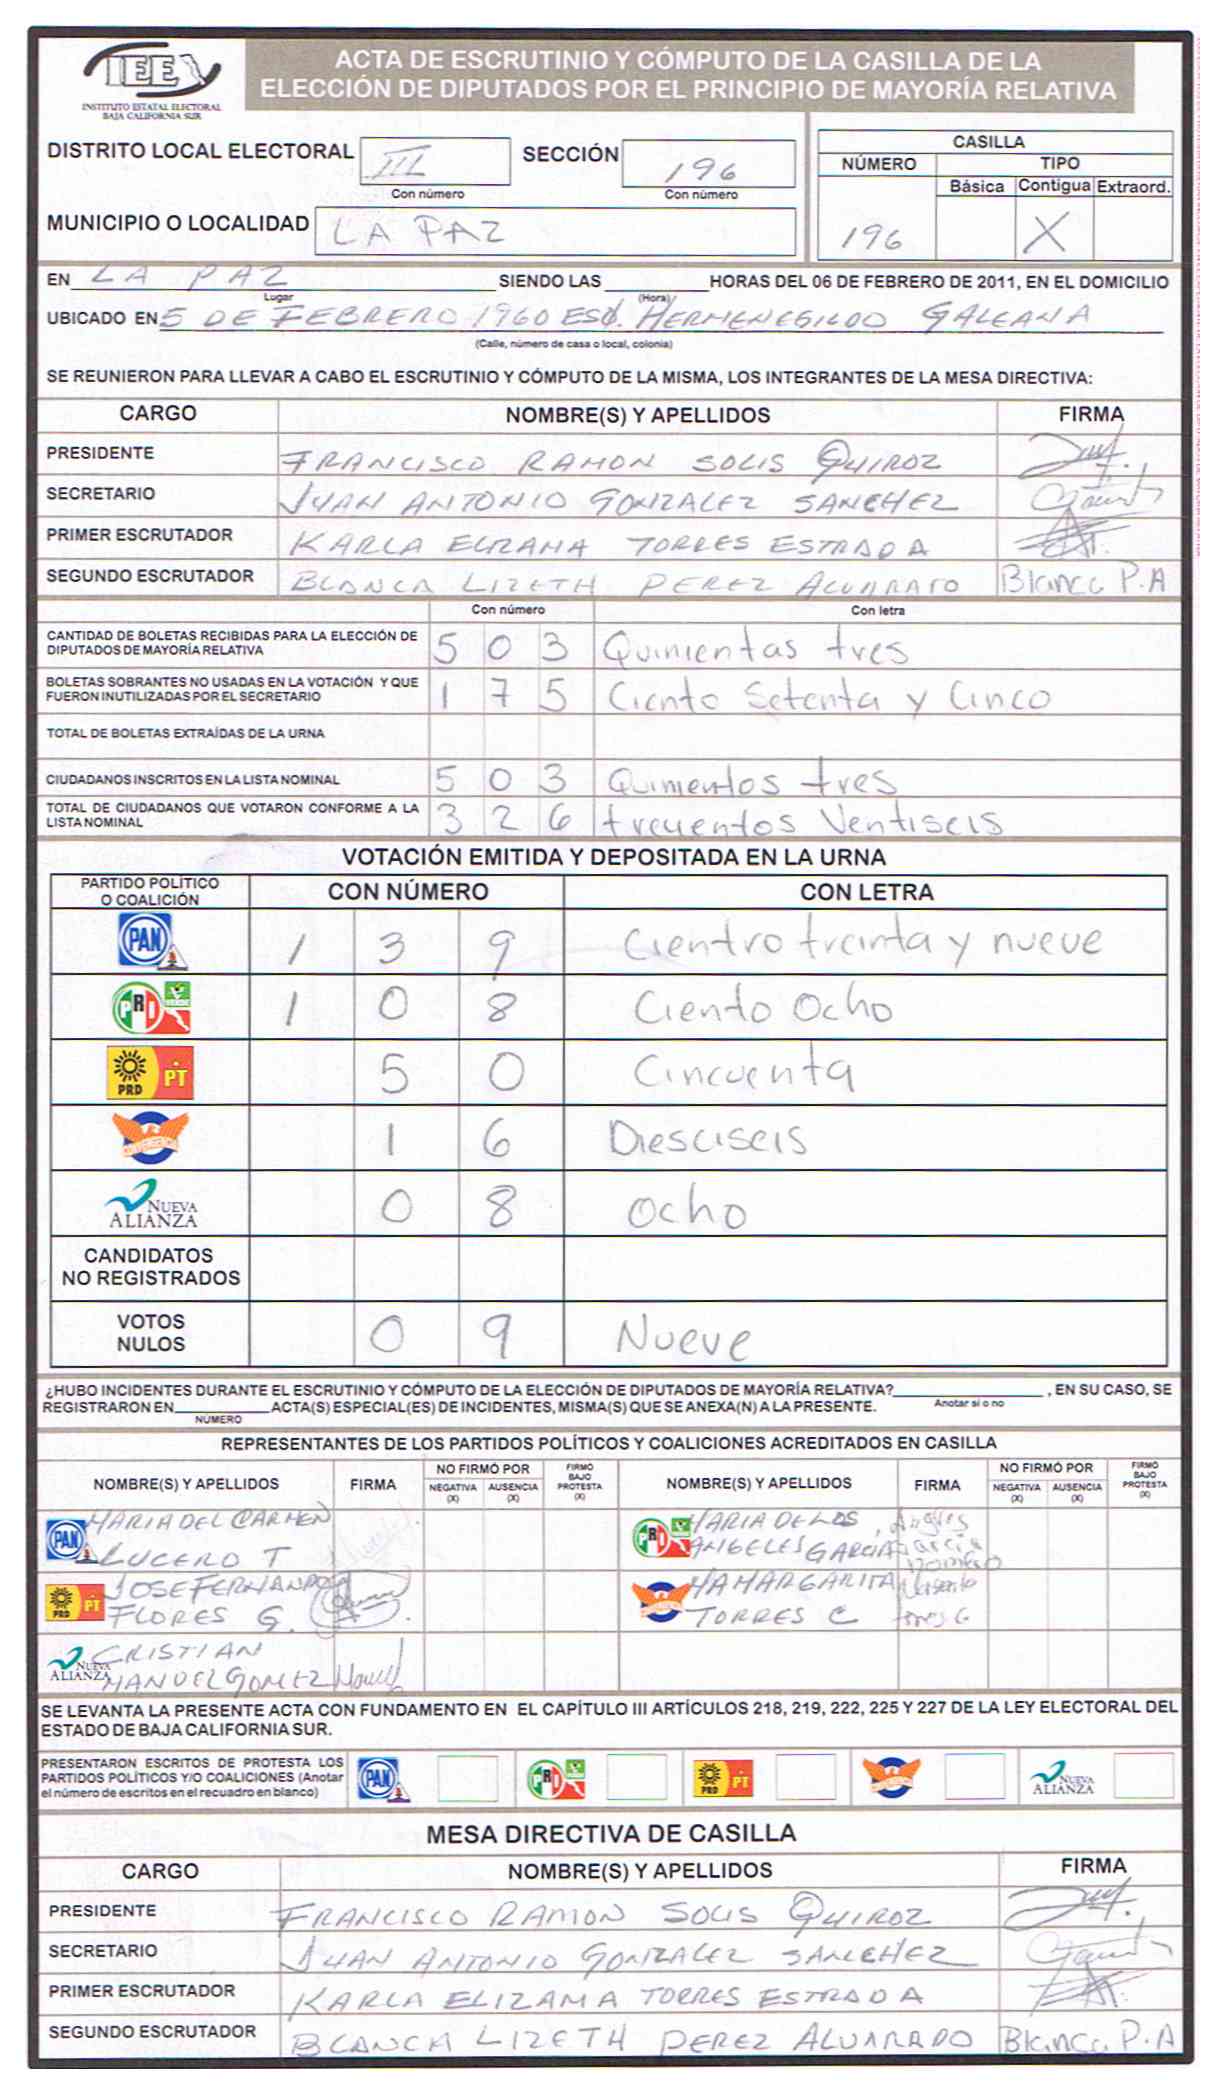 IEE
INSTITUTO ESTATAL ELECTORAL
BAJA CALIFORNIA SUR
ACTA DE ESCRUTINIO Y CÓMPUTO DE LA CASILLA DE LA
ELECCIÓN DE DIPUTADOS POR EL PRINCIPIO DE MAYORÍA RELATIVA
DISTRITO LOCAL ELECTORAL III SECCIÓN 196
Con número Con número
MUNICIPIO O LOCALIDAD LA PAZ
CASILLA
NÚMERO TIPO
Básica Contigua Extraord.
196 X
EN LA PAZ SIENDO LAS HORAS DEL 06 DE FEBRERO DE 2011, EN EL DOMICILIO
Lugar (Hora)
UBICADO EN 5 DE FEBRERO 1960 ESQ. HERMENEGILDO GALEANA
(Calle, número de casa o local, colonia)
SE REUNIERON PARA LLEVAR A CABO EL ESCRUTINIO Y CÓMPUTO DE LA MISMA, LOS INTEGRANTES DE LA MESA DIRECTIVA:
CARGO NOMBRE(S) Y APELLIDOS FIRMA
PRESIDENTE FRANCISCO RAMON SOLIS QUIROZ
SECRETARIO JUAN ANTONIO GONZALEZ SANCHEZ
PRIMER ESCRUTADOR KARLA ELIZAMA TORRES ESTRADA
SEGUNDO ESCRUTADOR BLANCA LIZETH PEREZ ALVARADO Blanca P.A
Con número Con letra
CANTIDAD DE BOLETAS RECIBIDAS PARA LA ELECCIÓN DE
DIPUTADOS DE MAYORÍA RELATIVA 5 0 3 Quinientas tres
BOLETAS SOBRANTES NO USADAS EN LA VOTACIÓN Y QUE
FUERON INUTILIZADAS POR EL SECRETARIO 1 7 5 Ciento Setenta y Cinco
TOTAL DE BOLETAS EXTRAÍDAS DE LA URNA
CIUDADANOS INSCRITOS EN LA LISTA NOMINAL 5 0 3 Quinientos tres
TOTAL DE CIUDADANOS QUE VOTARON CONFORME A LA
LISTA NOMINAL 3 2 6 trecuentos Ventiseis
VOTACIÓN EMITIDA Y DEPOSITADA EN LA URNA
PARTIDO POLÍTICO
O COALICIÓN CON NÚMERO CON LETRA
PAN 1 3 9 Cientro treinta y nueve
PRI VERDE 1 0 8 Ciento Ocho
PRD PT 5 0 Cincuenta
CONVERGENCIA 1 6 Diesciseis
NUEVA ALIANZA 0 8 ocho
CANDIDATOS
NO REGISTRADOS
VOTOS
NULOS 0 9 Nueve
¿HUBO INCIDENTES DURANTE EL ESCRUTINIO Y CÓMPUTO DE LA ELECCIÓN DE DIPUTADOS DE MAYORÍA RELATIVA? , EN SU CASO, SE
Anotar sí o no
REGISTRARON EN ACTA(S) ESPECIAL(ES) DE INCIDENTES, MISMA(S) QUE SE ANEXA(N) A LA PRESENTE.
NÚMERO
REPRESENTANTES DE LOS PARTIDOS POLÍTICOS Y COALICIONES ACREDITADOS EN CASILLA
NOMBRE(S) Y APELLIDOS FIRMA NO FIRMÓ POR NEGATIVA (X) AUSENCIA (X) FIRMÓ BAJO PROTESTA (X) NOMBRE(S) Y APELLIDOS FIRMA NO FIRMÓ POR NEGATIVA (X) AUSENCIA (X) FIRMÓ BAJO PROTESTA (X)
PAN MARIA DEL CARMEN
LUCERO T
PRI VERDE MARIA DE LOS
ANGELES GARCIA
PRD PT JOSE FERNANDO
FLORES G.
MA MARGARITA
TORRES C
NUEVA ALIANZA CRISTIAN
MANUEL GOMEZ
SE LEVANTA LA PRESENTE ACTA CON FUNDAMENTO EN EL CAPÍTULO III ARTÍCULOS 218, 219, 222, 225 Y 227 DE LA LEY ELECTORAL DEL
ESTADO DE BAJA CALIFORNIA SUR.
PRESENTARON ESCRITOS DE PROTESTA LOS
PARTIDOS POLÍTICOS Y/O COALICIONES (Anotar
el número de escritos en el recuadro en blanco)
PAN PRI PRD PT NUEVA ALIANZA
MESA DIRECTIVA DE CASILLA
CARGO NOMBRE(S) Y APELLIDOS FIRMA
PRESIDENTE FRANCISCO RAMON SOLIS QUIROZ
SECRETARIO JUAN ANTONIO GONZALEZ SANCHEZ
PRIMER ESCRUTADOR KARLA ELIZAMA TORRES ESTRADA
SEGUNDO ESCRUTADOR BLANCA LIZETH PEREZ ALVARADO Blanca P.A